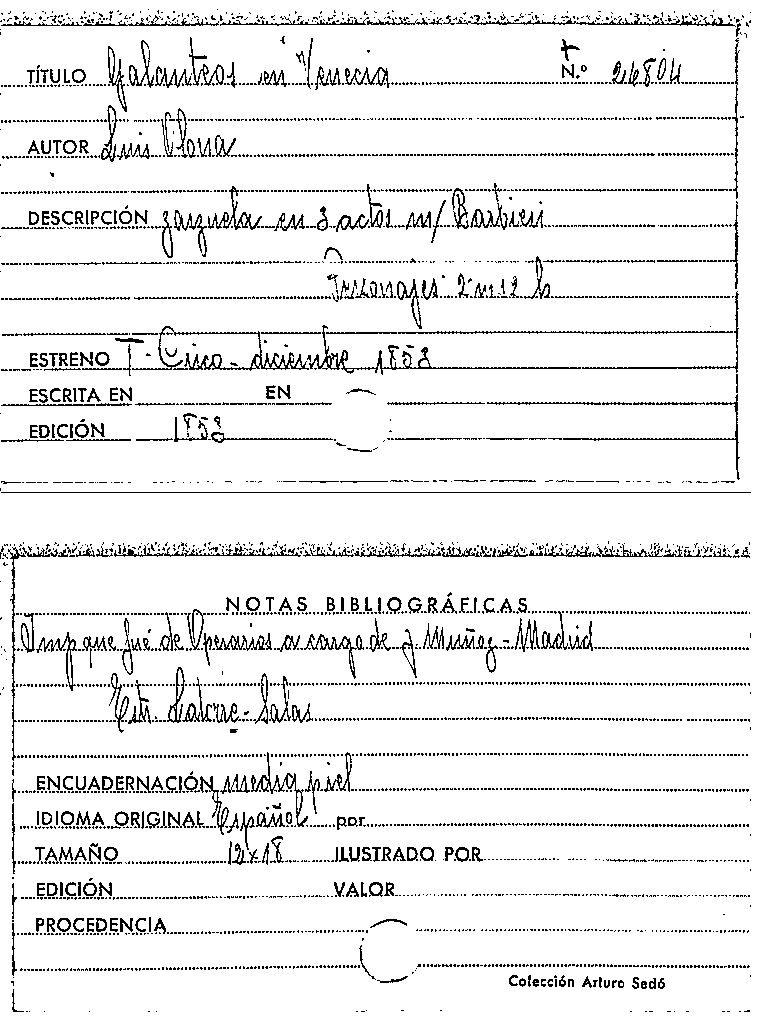 TÍTULO Galanteos en Venecia N.º 26804
AUTOR Luis Olona
DESCRIPCIÓN zarzuela en 3 actos m/ Barbieri
Personajes 2 m 12 h
ESTRENO T. Circo - diciembre 1853
ESCRITA EN EN
EDICIÓN 1853
NOTAS BIBLIOGRÁFICAS
Imp que fué de Operarios a cargo de J. Muñoz - Madrid
Estr. Latorre - Salas
ENCUADERNACIÓN media piel
IDIOMA ORIGINAL Español por
TAMAÑO 12 x 18 ILUSTRADO POR
EDICIÓN VALOR
PROCEDENCIA
Colección Arturo Sedó